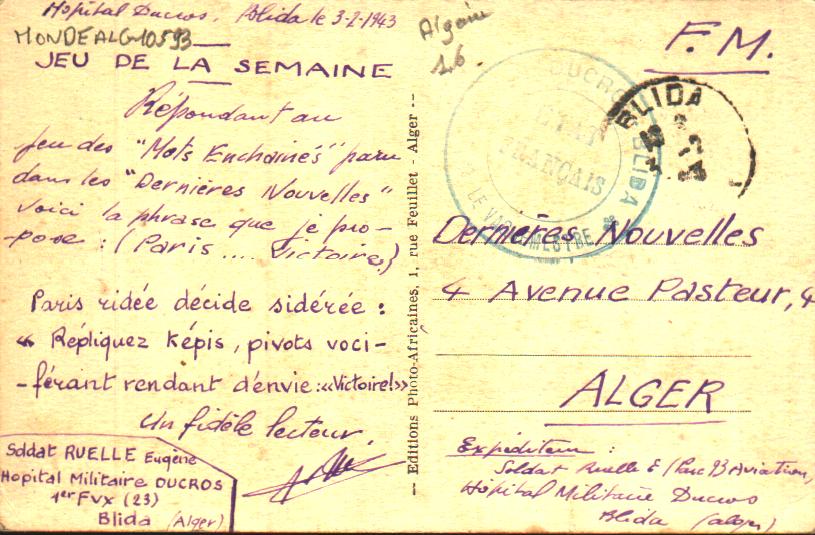 Hopital Ducros. Blida le 3-2-1943
MONDEALG10593
JEU DE LA SEMAINE
Répondant au
jeu des "Mots Enchaînés" paru
dans les "Dernières Nouvelles"
voici la phrase que je pro-
-pose : (Paris .... Victoire)
Paris ridée décide sidérée :
"Répliquez képis, pivots voci-
-férant rendant d'envie : «Victoire!»»
Un fidèle lecteur.
Soldat RUELLE Eugène
Hopital Militaire DUCROS
1er Fvx (23)
Blida (Alger)
-- Editions Photo-Africaines, 1, rue Feuillet - Alger --
F.M.
DUCROS BLIDA
ETAT
FRANÇAIS
LE VAGUEMESTRE
BLIDA
Dernières Nouvelles
4 Avenue Pasteur, 4
ALGER
Expéditeur :
Soldat Ruelle E (Parc 93 Aviation)
Hôpital Militaire Ducros
Blida (alger)